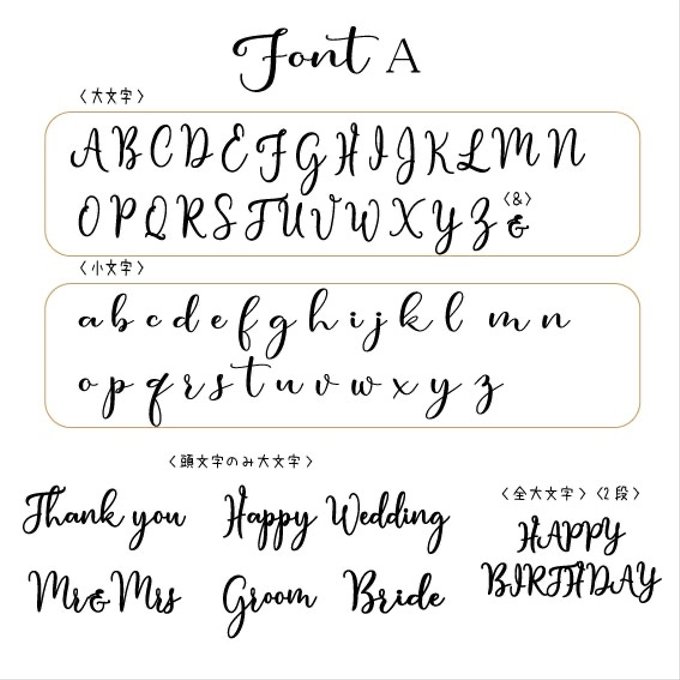 Font A
〈大文字〉
A B C D E F G H I J K L M N
O P Q R S T U V W X Y Z 〈&〉 &
〈小文字〉
a b c d e f g h i j k l m n
o p q r s t u v w x y z
〈頭文字のみ大文字〉
Thank you Happy Wedding
Mr&Mrs Groom Bride
〈全大文字〉〈2段〉
HAPPY
BIRTHDAY